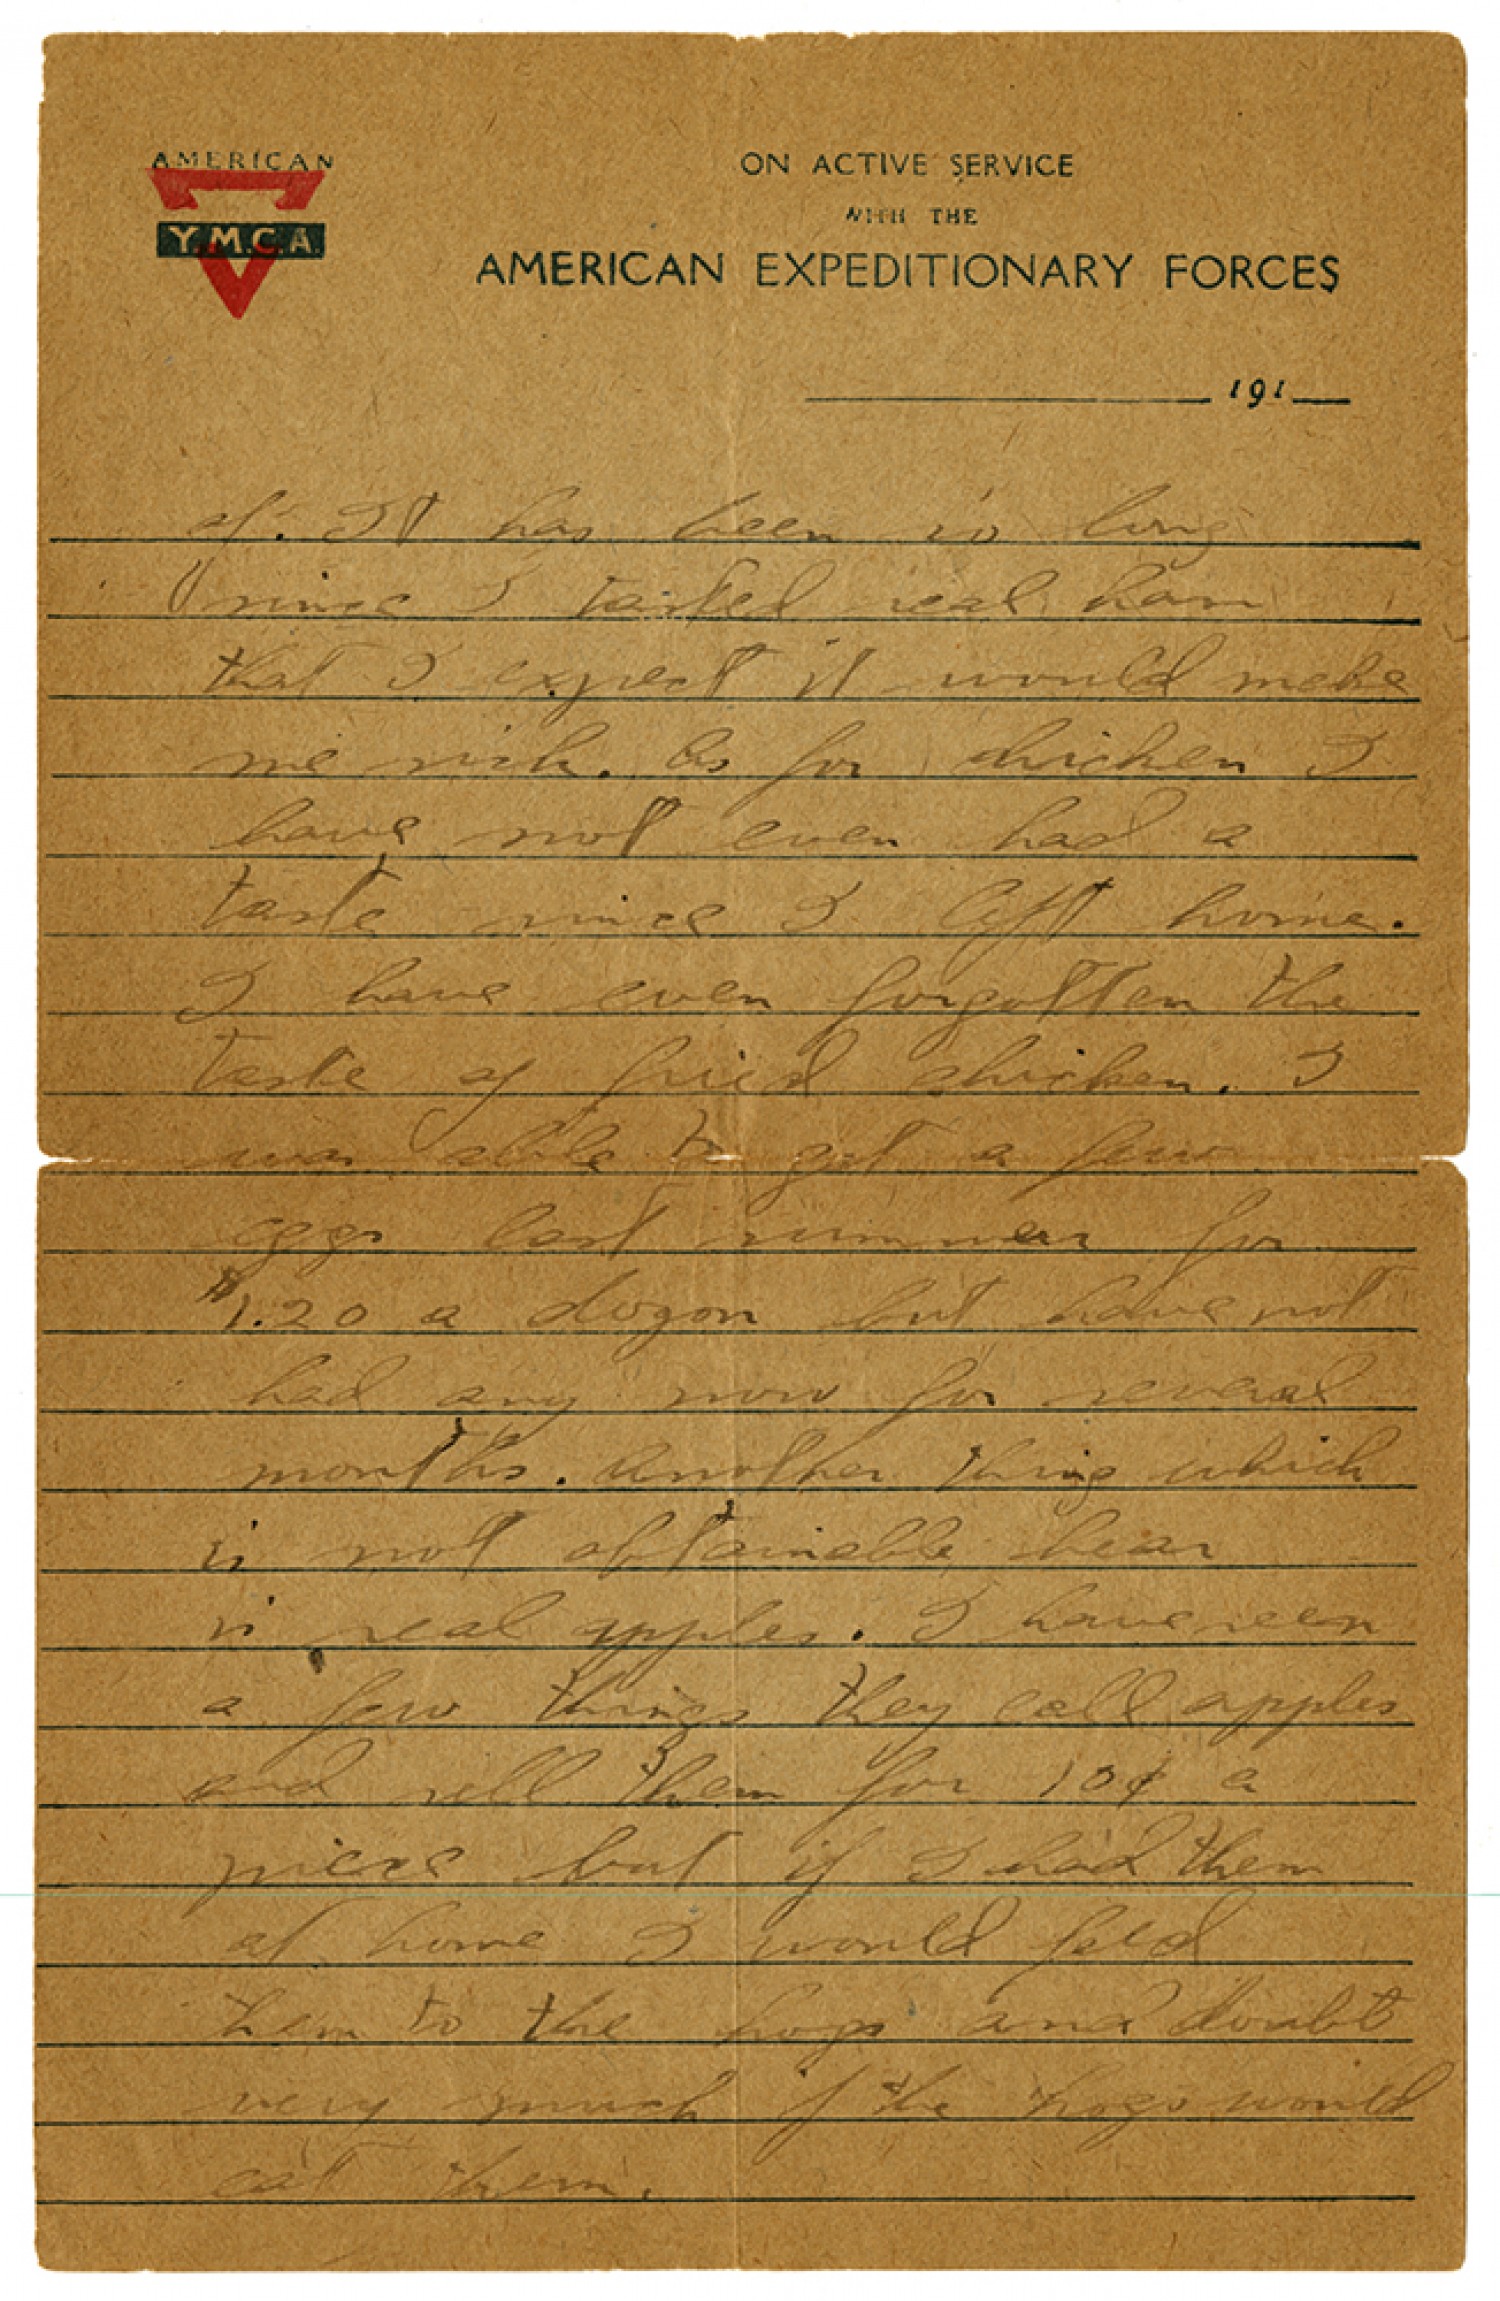 AMERICAN
Y.M.C.A.
ON ACTIVE SERVICE
WITH THE
AMERICAN EXPEDITIONARY FORCES
191
of. It has been so long
since I tasted real ham
that I expect it would make
me sick. As for chicken I
have not even had a
taste since I left home.
I have even forgotten the
taste of fried chicken. I
was able to get a few
eggs last summer for
$1.20 a dozon but have not
had any now for several
months. Another thing which
is not obtainable hear
is real apples. I have seen
a few things they call apples
and sell them for 10¢ a
piece but if I had them
at home I would feed
them to the hogs and doubt
very much if the hogs would
eat them.